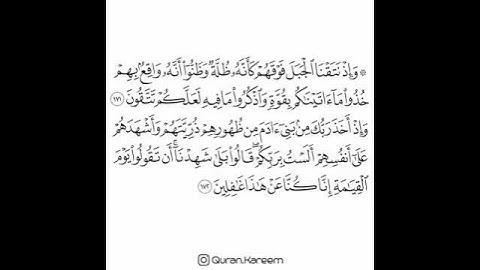 ۞ وَإِذْ نَتَقْنَا ٱلْجَبَلَ فَوْقَهُمْ كَأَنَّهُۥ ظُلَّةٌ وَظَنُّوٓا۟ أَنَّهُۥ وَاقِعٌۢ بِهِمْ
خُذُوا۟ مَآ ءَاتَيْنَٰكُم بِقُوَّةٍ وَٱذْكُرُوا۟ مَا فِيهِ لَعَلَّكُمْ تَتَّقُونَ ١٧١
وَإِذْ أَخَذَ رَبُّكَ مِنۢ بَنِىٓ ءَادَمَ مِن ظُهُورِهِمْ ذُرِّيَّتَهُمْ وَأَشْهَدَهُمْ
عَلَىٰٓ أَنفُسِهِمْ أَلَسْتُ بِرَبِّكُمْ ۖ قَالُوا۟ بَلَىٰ ۛ شَهِدْنَآ ۛ أَن تَقُولُوا۟ يَوْمَ
ٱلْقِيَٰمَةِ إِنَّا كُنَّا عَنْ هَٰذَا غَٰفِلِينَ ١٧٢
Quran.Kareem